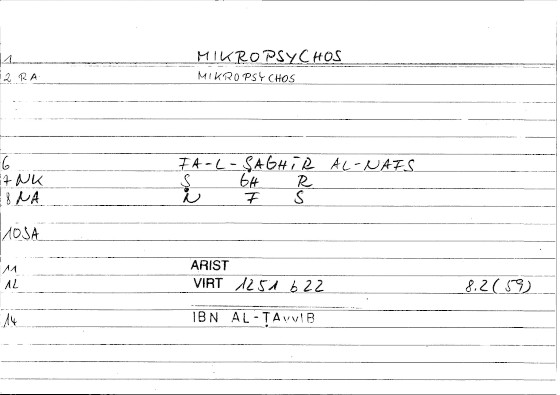 1 MIKROPSYCHOS
2 RA MIKROPSYCHOS
6 FA-L-ṢAGHĪR AL-NAFS
7 NK Ṣ GH R
8 NA N F S
10 SA
11 ARIST
12 VIRT 1251 b22 8.2 (59)
14 IBN AL-ṬAYYIB